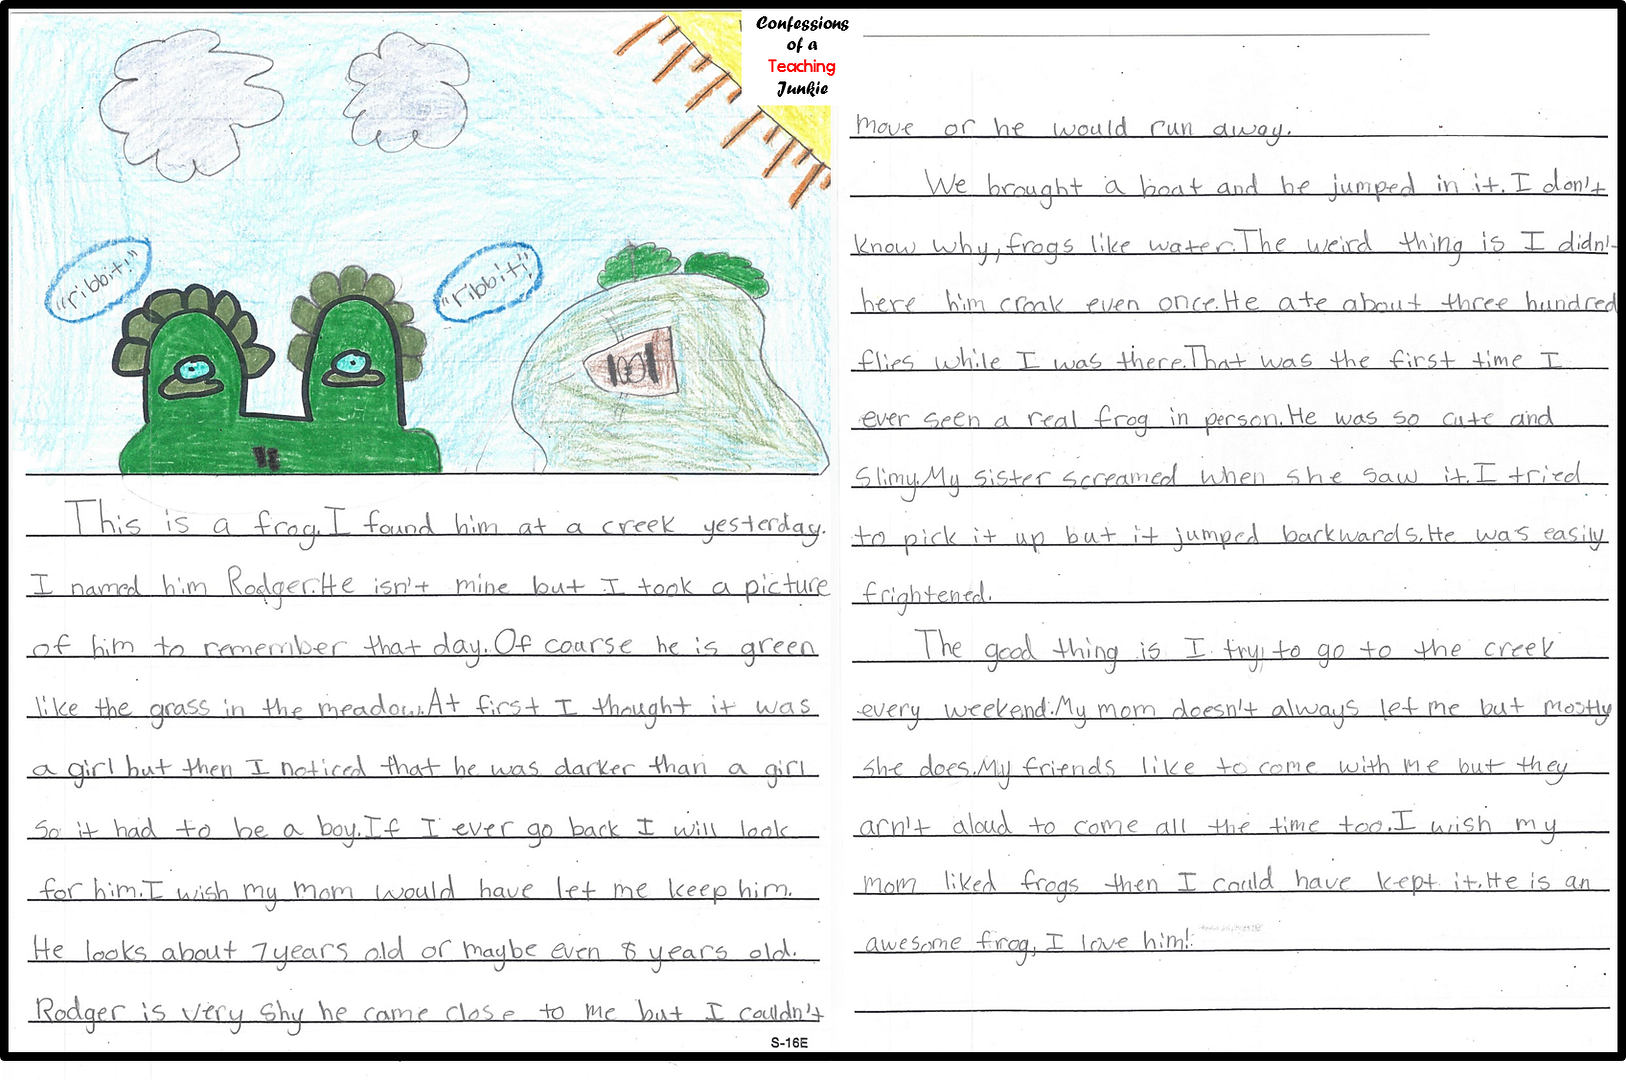 Confessions
of a
Teaching
Junkie
"ribbit!"
"ribbit!"
This is a frog. I found him at a creek yesterday.
I named him Rodger. He isn't mine but I took a picture
of him to remember that day. Of course he is green
like the grass in the meadow. At first I thought it was
a girl but then I noticed that he was darker than a girl
so it had to be a boy. If I ever go back I will look
for him. I wish my mom would have let me keep him.
He looks about 7 years old or maybe even 8 years old.
Rodger is very shy he came close to me but I couldn't
S-16E
move or he would run away.
We brought a boat and he jumped in it. I don't
know why, frogs like water. The weird thing is I didn't
here him croak even once. He ate about three hundred
flies while I was there. That was the first time I
ever seen a real frog in person. He was so cute and
slimy. My sister screamed when she saw it. I tried
to pick it up but it jumped backwards. He was easily
frightened.
The good thing is I try to go to the creek
every weekend. My mom doesn't always let me but mostly
she does. My friends like to come with me but they
arn't aloud to come all the time too. I wish my
mom liked frogs then I could have kept it. He is an
awesome frog, I love him!